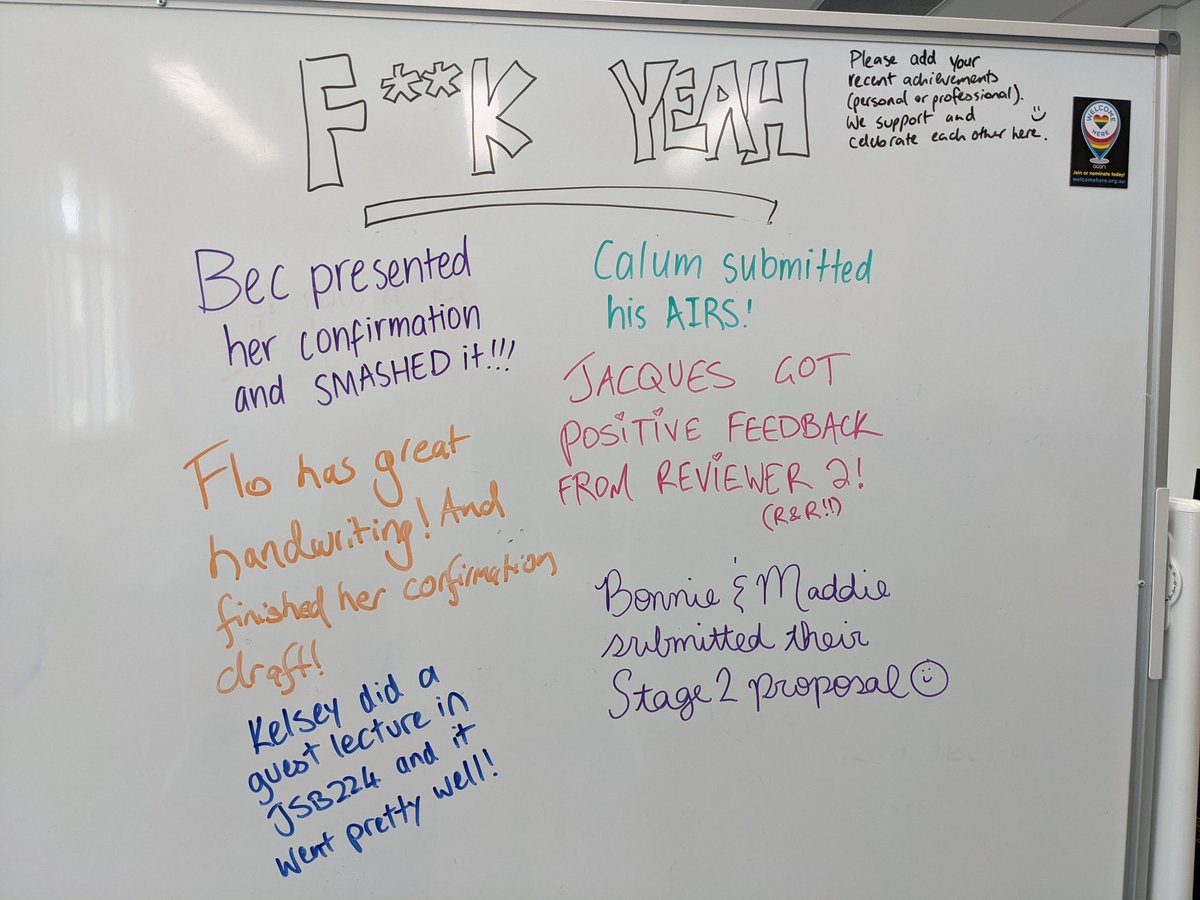 F**K YEAH
Please add your
recent achievements
(personal or professional).
We support and
celebrate each other here.
WELCOME
HERE
acon
Join or nominate today!
welcomehere.org.au
Bec presented
her confirmation
and SMASHED it!!!
Calum submitted
his AIRS!
JACQUES GOT
POSITIVE FEEDBACK
FROM REVIEWER 2!
(R&R!!)
Flo has great
handwriting! And
finished her confirmation
draft!
Bonnie & Maddie
submitted their
Stage 2 proposal
Kelsey did a
guest lecture in
JSB224 and it
went pretty well!